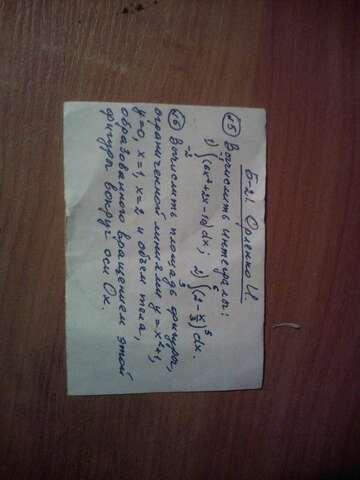 Б-21. Орленко И.
№5 Вычислить интегралы:
1) ∫₋₂⁻¹ (6x²+2x-10)dx; 2) ∫₃⁶ (2-x/3)⁵dx.
№6 Вычислить площадь фигуры,
ограниченной линиями y=x²+1,
y=0, x=1, x=2 и объем тела,
образованного вращением этой
фигуры вокруг оси Ox.